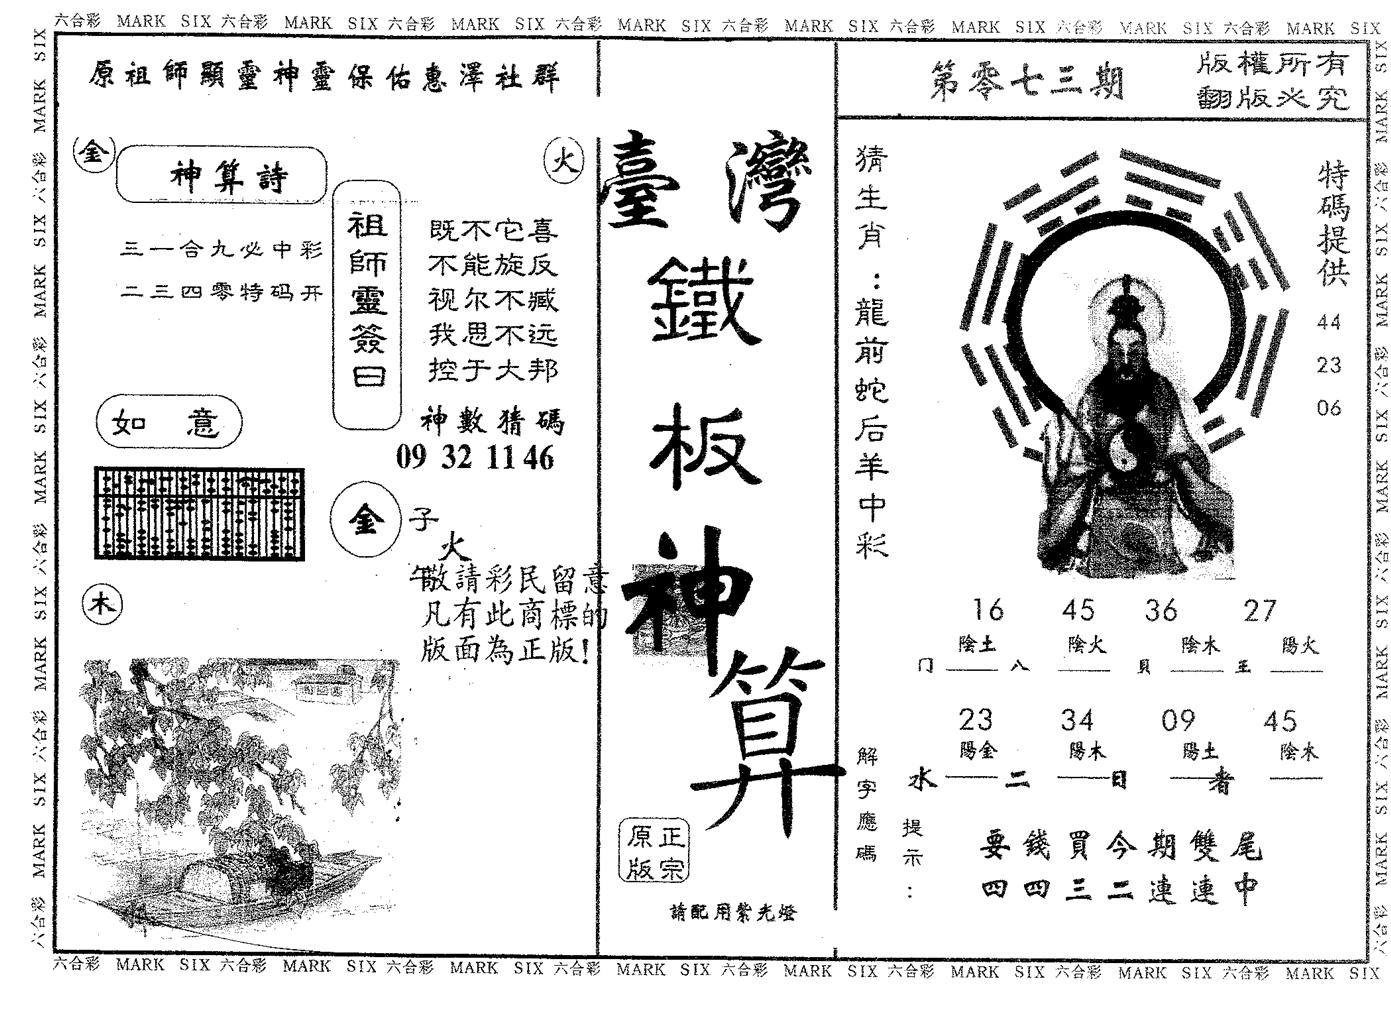 六合彩 MARK SIX 六合彩 MARK SIX 六合彩 MARK SIX 六合彩 MARK SIX 六合彩 MARK SIX 六合彩 MARK SIX 六合彩 MARK SIX 六合彩 MARK SIX
原祖師顯靈神靈保佑惠澤社群
金
神算詩
火
三一合九必中彩
二三四零特码开
祖師靈簽曰
既不它喜
不能旋反
视尔不臧
我思不远
控于大邦
神數猜碼
09 32 11 46
如意
金
子
火
午
敬請彩民留意
凡有此商標的
版面為正版!
木
臺灣
鐵
板
神
算
正宗
原版
請配用紫光燈
第零七三期
版權所有
翻版必究
猜生肖:龍前蛇后羊中彩
特碼提供
44
23
06
16 45 36 27
陰土 陰火 陰木 陽火
门 八 貝 王
23 34 09 45
陽金 陽木 陽土 陰木
水 二 日 者
解字應碼
提示:
要錢買今期雙尾
四四三二連連中
六合彩 MARK SIX 六合彩 MARK SIX 六合彩 MARK SIX 六合彩 MARK SIX 六合彩 MARK SIX 六合彩 MARK SIX 六合彩 MARK SIX 六合彩 MARK SIX